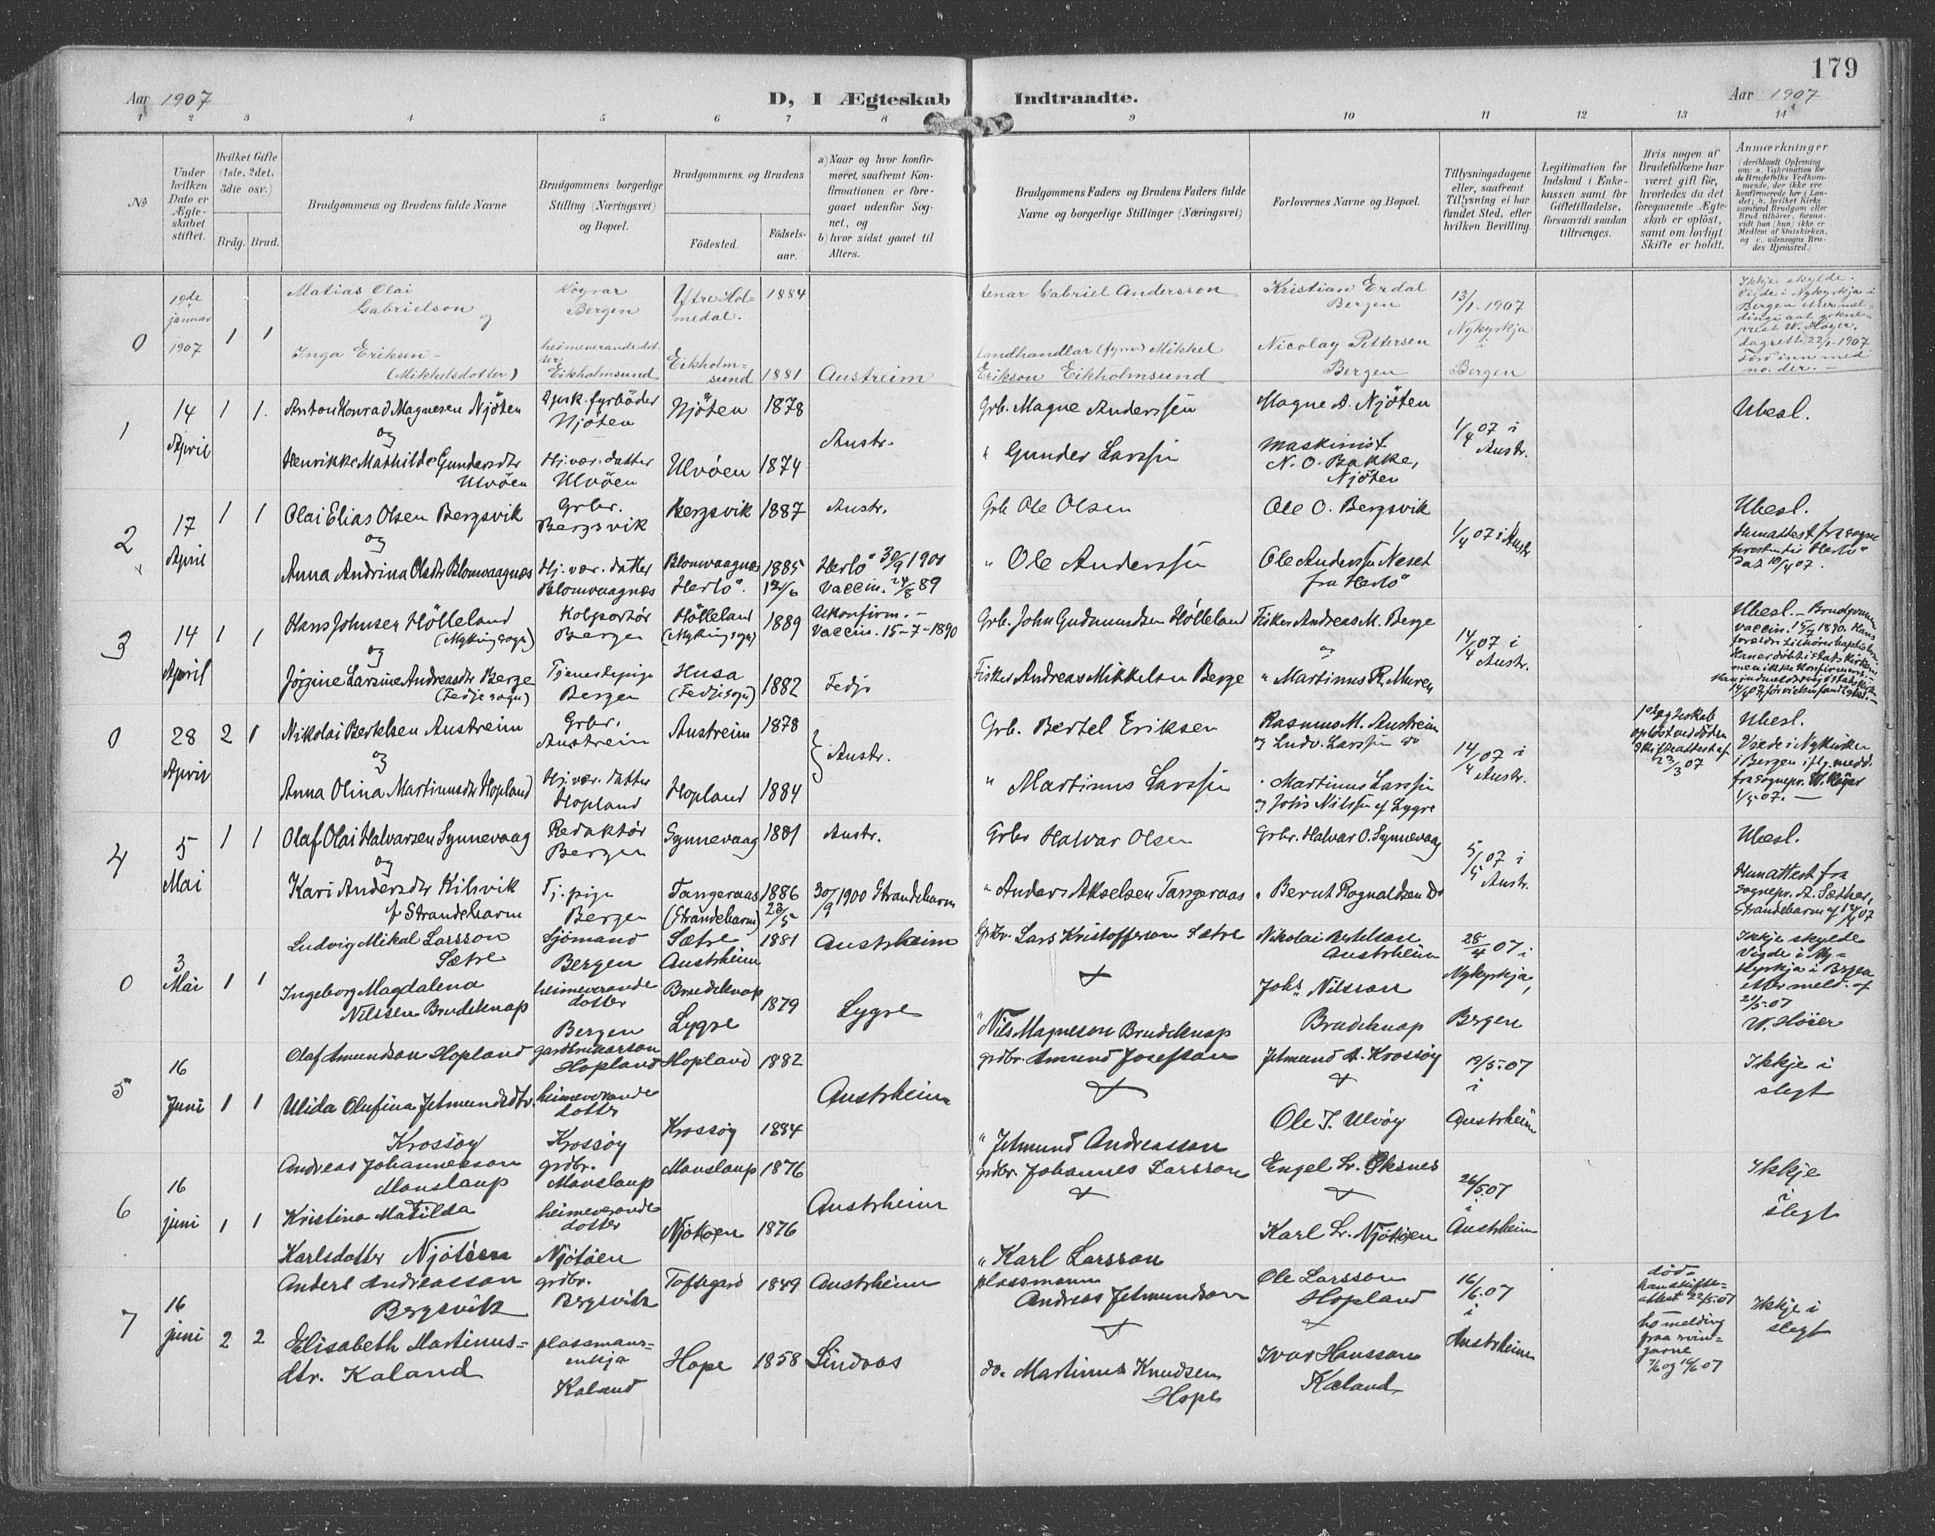 179
Aar 1907
D, I Ægteskab Indtraadte.
Aar 1907
1 2 3 4 5 6 7 8 9 10 11 12 13 14
No
Under hvilken Dato er Ægteskabet stiftet.
Hvilket Gifte (1ste, 2det, 3die osv.)
Brdg. Brud.
Brudgommens og Brudens fulde Navne
Brudgommens borgerlige Stilling (Næringsvei) og Bopæl.
Brudgommens og Brudens
Fødested.
Fødselsaar.
a) Naar og hvor konfirmeret, saafremt Konfirmationen er foregaaet udenfor Sognet, og
b) hvor sidst gaaet til Alters.
Brudgommens Faders og Brudens Faders fulde Navne og borgerlige Stillinger (Næringsvei)
Forlovernes Navne og Bopæl.
Tillysningsdagene eller, saafremt Tillysning ei har fundet Sted, efter hvilken Bevilling.
Legitimation for Indskud i Enkekassen samt for Giftetilladelse, forsaavidt saadan tiltrænges.
Hvis nogen af Brudefolkene har været gift før, hvorledes da det foregaaende Ægteskab er opløst, samt om lovligt Skifte er holdt.
Anmærkninger
0 19de januar 1907 1 1
Matias Olai Gabrielson
og
Bergen
Ytre Holmedal.
1884
Gabriel Andersson
Kristian Erdal Bergen
13/1 1907 Nykyrkja Bergen
Ikkje skylde. Vigde i Nykyrkja i Bergen etter meldingi aat sokneprest W. Høyer, dagsett 22/1-1907
Inga Erikson (Mikkelsdotter)
heimeverande dotter Eikholmsund
Eikholmsund
1881
Austreim
Landhandlar Mikkel Erikson Eikholmsund
Nicolay Pettersen Bergen
1 14 April 1 1.
Anton Konrad Magnesen Njöten
og
fyrböder Njöten
Njöten
1878
Austr.
Grb. Magne Anderssen
Magne A. Njöten
1/4 07 i Austr.
Ubesl.
Henrikke Mathilde Gundersdtr Ulvöen
Hj.vær. datter Ulvöen
Ulvöen
1874
" Gunder Larssen
Maskinist N. O. Bakke, Njöten
2 17 April 1 1
Olai Elias Olsen Bergsvik
og
Grbr. Bergsvik
Bergsvik
1887
Austr.
Grb Ole Olsen
Ole O. Bergsvik
1/4 07 i Austr
Ubesl.
Anna Andrina Olsdtr Blomvaagnes
Hj. vær. datter Blomvaagnes
Blomvaagnes Herlö.
1885 12/6
Herlö 30/9 1900 Vaccin. 24/8 89
" Ole Anderssen
Ole Anderssen Neset fra Herlö
3 14 April 1 1
Hans Johnsen Hölleland (Mykingsogn)
og
Kolportör Bergen
Hölleland (Mykingsogn)
1889
Ukonfirm. - Vaccin. 15-7-1890
Grb. John Gudmundsen Hölleland
Fisker Andreas M. Berge
og
14/4 07 i Austr.
Ubesl. - Brudgommen
Jörgine Larsine Andreasdtr Berge (Fedje sogn)
Tjenestepige Bergen
Husa (Fedje sogn)
1882
Fedje
Fisker Andreas Mikkelsen Berge
" Martinus R. Muren
0 28 April 2 1
Nikolai Bertelsen Austreim
og
Grbr. Austreim
Austreim
1878
Austr.
Grb. Bertel Eriksen
Rasmus M. Austreim og Ludv. Larssen do
14/4 07 i Austr.
1ste Ægteskab oplöst ved döden Skifteattest af 23/3 07
Ubesl. Viede i Nykirken i Bergen iflg. medd. fra sognepr. W. Höyer 1/5 07. -
Anna Olina Martinusdtr Hopland
Hj.vær. datter Hopland
Hopland
1884
" Martinus Larssen
Martinus Larssen og Johs Nilssen af Lygre
4 5 Mai 1 1
Olaf Olai Halvarsen Synnevaag
og
Redaktör Bergen
Synnevaag
1881
Austr.
Grbr Halvar Olsen
Grbr. Halvar O. Synnevaag
5/5 07 i Austr.
Ubesl.
Kari Andersdtr Kilsvik f Strandebarm
Tj. pige Bergen
Tangeraas (Strandebarm)
1886 23/5
30/9 1900 Strandebarm
" Anders Akselsen Tangeraas
" Bernt Rognaldsen do
0 3 Mai 1 1
Ludvig Mikal Larsson Sætre
Sjömand Bergen
Sætre Austrheim
1881
Austrheim
Grdbr. Lars Kristofferson Sætre
Nikolai Bertelson Austrheim
28/4 07 i Nykyrkja, Bergen
Ikkje skylde Vigde i Nykyrkja i Bergen etter meld. af 21/5-07 W. Höier
Ingeborg Magdalena Nilssen Brudeknap
heimeverande dotter Bergen
Brudeknap Lygre
1879
Lygre
" Nils Magneson Brudeknap
Johs. Nilsson Brudeknap
5 16 Juni 1 1
Olaf Amundson Hopland
gardbrukarson Hopland
Hopland
1882
Austrheim
grdbr. Amund Josefson
Jetmund A. Krossöy
19/5-07 i Austrheim
Ikkje i slegt
Ulida Olufina Jetmundsdtr. Krossöy
heimeverande dotter Krossöy
Krossöy
1884
" Jetmund Andreasson
Ole J. Ulvöy
6 16 juni 1 1
Andreas Johannesson Monslaup
grdbr. Monslaup
Monslaup
1876
Austrheim
grdbr. Johannes Larsson
Engel Lr. Oksnes
26/5 07 i Austrheim
Ikkje i slegt
Kristina Matilda Karlsdotter Njötöen
heimeverande dotter Njötöen
Njötöen
1876
" Karl Larsson
Karl Lr. Njötöen
7 16 juni 2 2
Anders Andreasson Bergsvik
grdbr. Bergsvik
Toftegard
1849
Austrheim
plassmann Andreas Jetmundson
Ole Larsson Hopland
16/6.07 i Austrheim
Ikkje i slegt
Elisabeth Martinusdtr. Kaland
plassmansenkja Kaland
Hope
1858
Lindaas
do. Martinus Knudsen Hope
Ivar Hansson Kaland